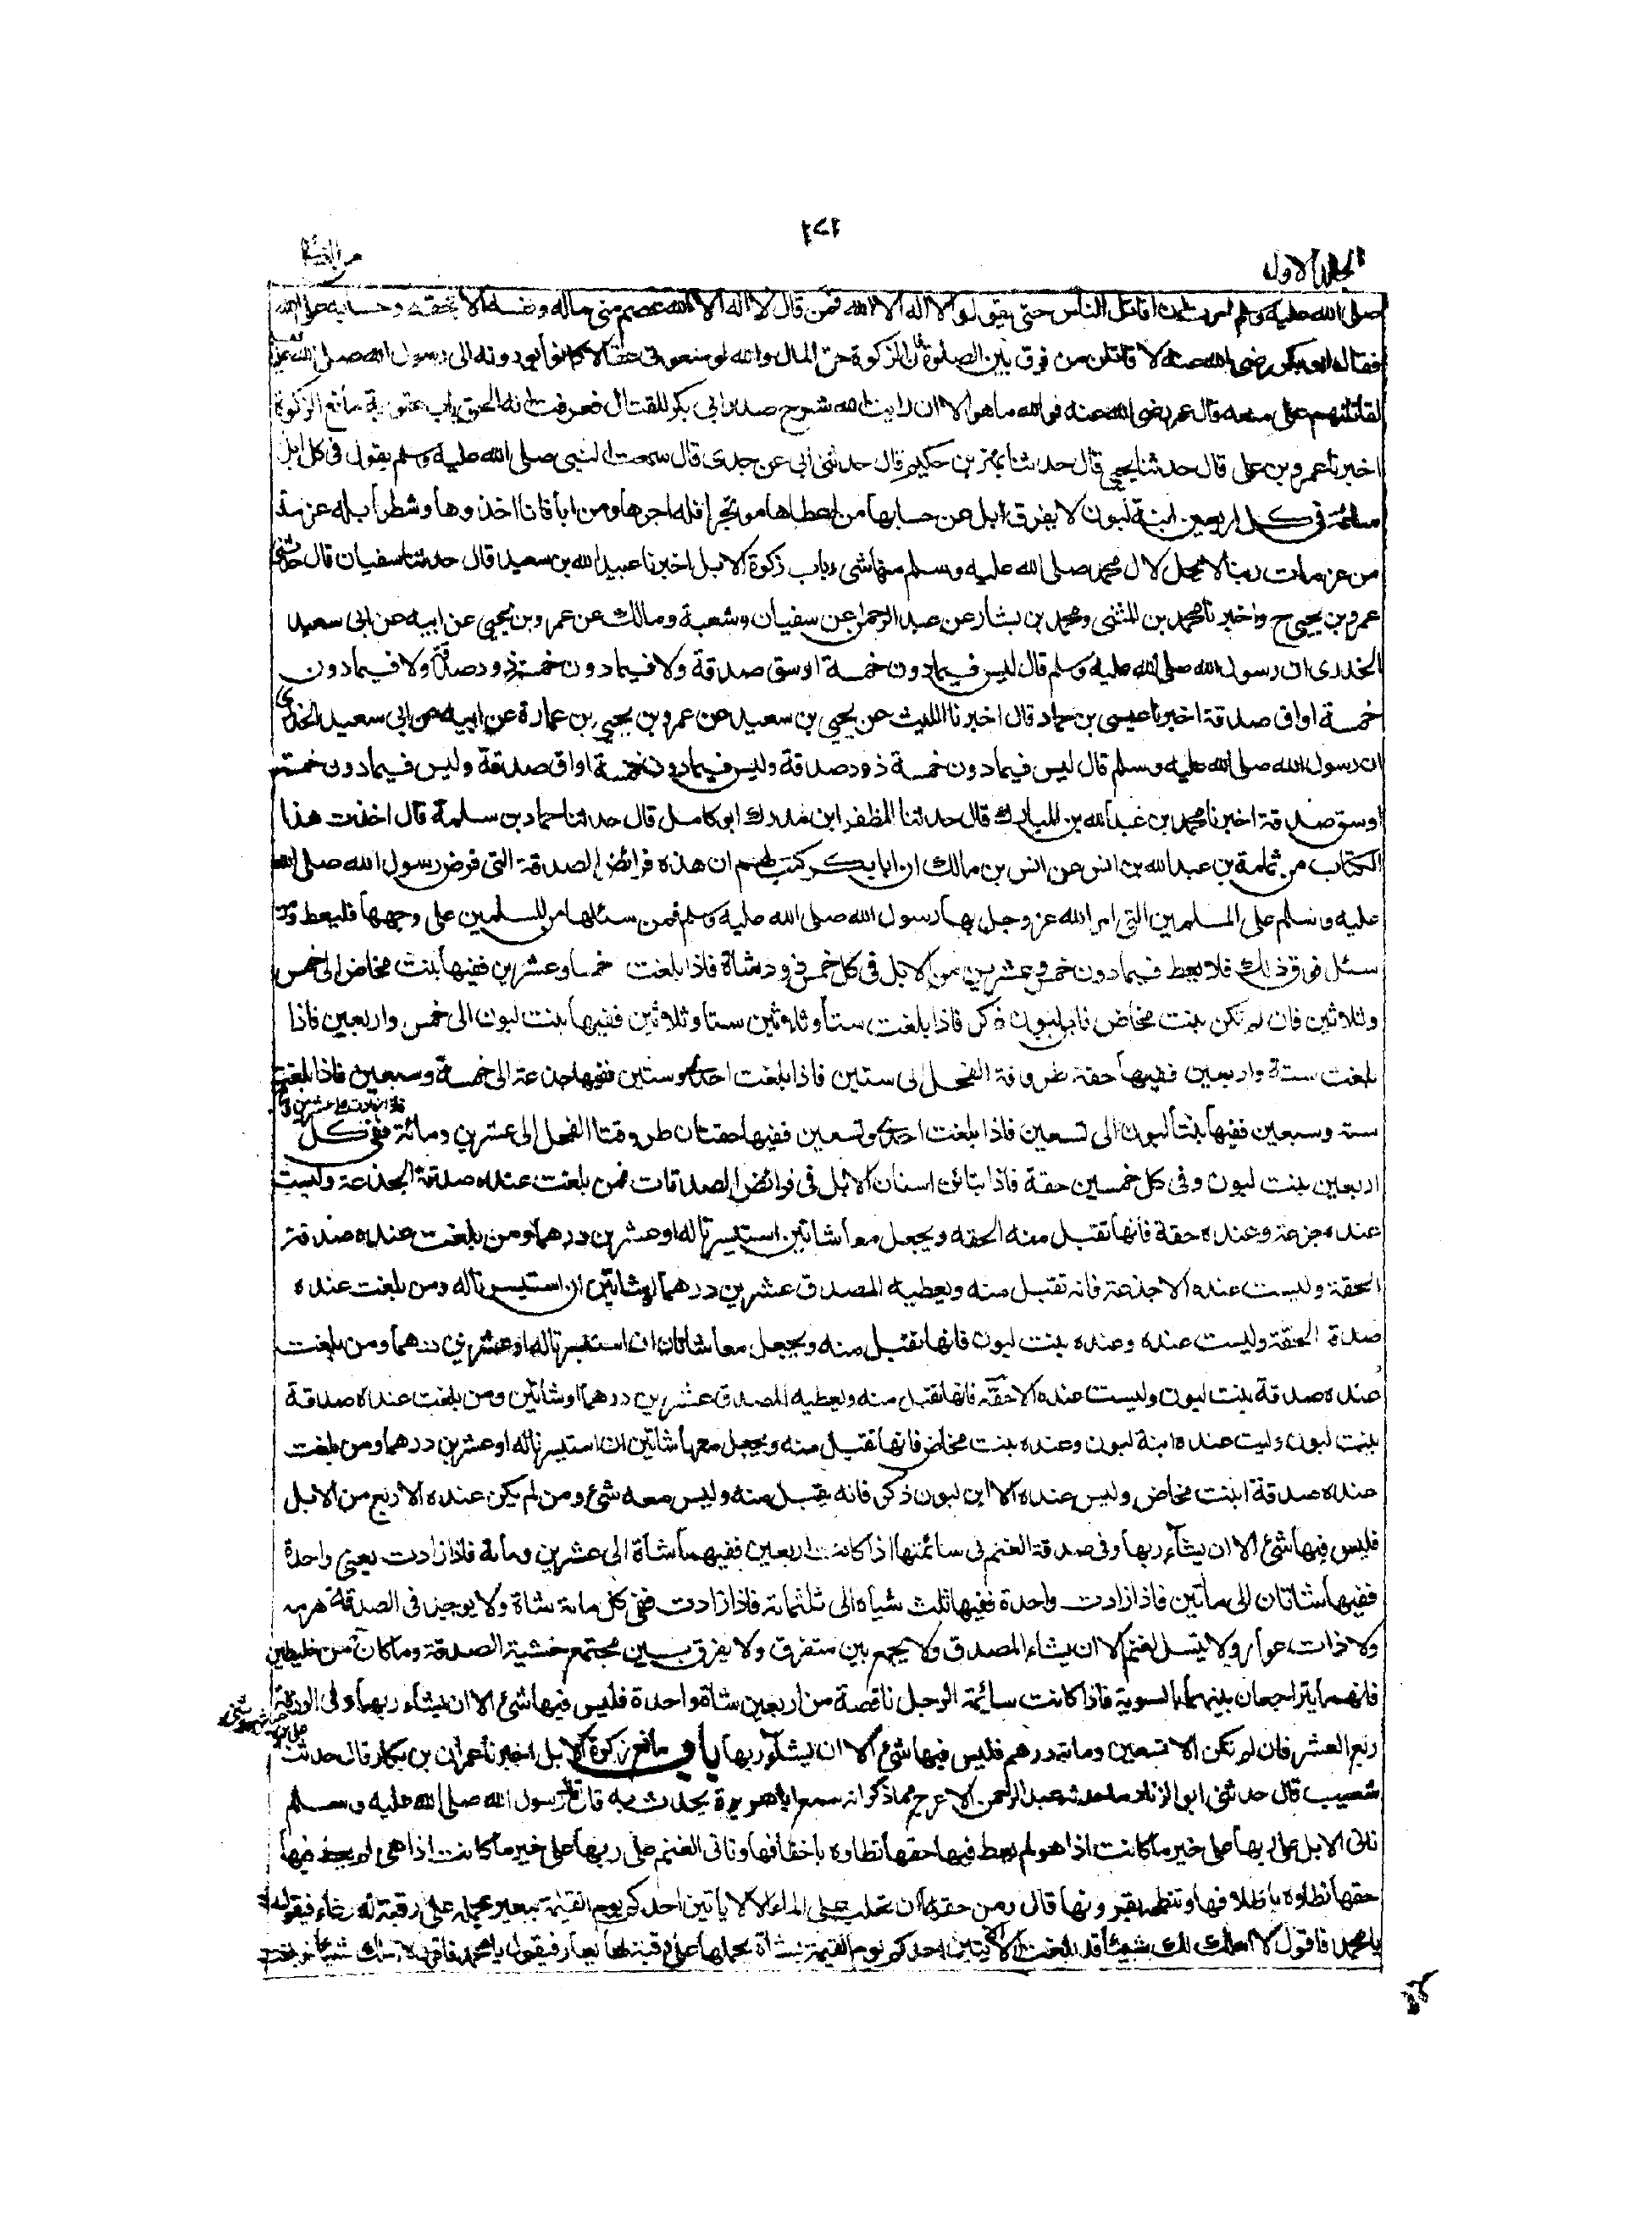 ٢٧١
الجلد الاول
من النسائي
صلى الله عليه وسلم امرت ان اقاتل الناس حتى يقولوا لا اله الا الله فمن قال لا اله الا الله عصم مني ماله ونفسه الا بحقه وحسابه على الله
فقال ابو بكر رضي الله عنه لا قاتلن من فرق بين الصلوة والزكوة فان الزكوة حق المال والله لو منعوني عقالا كانوا يودونه الى رسول الله صلى الله عليه وسلم
لقاتلتهم على منعه قال عمر رضي الله عنه فوالله ما هو الا ان رايت الله شرح صدر ابي بكر للقتال فعرفت انه الحق باب عقوبة مانع الزكوة
اخبرنا عمرو بن على قال حدثنا يحيى قال حدثنا بهز بن حكيم قال حدثني ابي عن جدى قال سمعت النبي صلى الله عليه وسلم يقول في كل ابل
سائمة في كل اربعين ابنة لبون لا يفرق ابل عن حسابها من اعطاها موتجرا فله اجرها ومن ابا فانا اخذوها وشطر ابله عزمة
من عزمات ربنا لا يحل لال محمد صلى الله عليه وسلم منها شئ باب زكوة الابل اخبرنا عبيد الله بن سعيد قال حدثنا سفيان قال حدثني
عمرو بن يحيى ح واخبرنا محمد بن المثنى ومحمد بن بشار عن عبد الرحمن عن سفيان وشعبة ومالك عن عمرو بن يحيى عن ابيه عن ابي سعيد
الخدرى ان رسول الله صلى الله عليه وسلم قال ليس فيما دون خمسة اوسق صدقة ولا فيما دون خمس ذود صدقة ولا فيما دون
خمسة اواق صدقة اخبرنا عيسى بن حماد قال اخبرنا الليث عن يحيى بن سعيد عن عمرو بن يحيى بن عمارة عن ابيه عن ابي سعيد الخدرى
ان رسول الله صلى الله عليه وسلم قال ليس فيما دون خمسة ذود صدقة وليس فيما دون خمسة اواق صدقة وليس فيما دون خمسة
اوسق صدقة اخبرنا محمد بن عبد الله بن المبارك قال حدثنا المظفر ابن مدرك ابو كامل قال حدثنا حماد بن سلمة قال اخذت هذا
الكتاب من ثمامة بن عبد الله بن انس عن انس بن مالك ان ابا بكر كتب لهم ان هذه فرائض الصدقة التي فرض رسول الله صلى الله
عليه وسلم على المسلمين التي امر الله عز وجل بها رسول الله صلى الله عليه وسلم فمن سئلها من المسلمين على وجهها فليعط ومن
سئل فوق ذلك فلا يعط فيما دون خمس وعشرين من الابل في كل خمس ذود شاة فاذا بلغت خمسا وعشرين ففيها بنت مخاض الى خمس
وثلاثين فان لم تكن بنت مخاض فابن لبون ذكر فاذا بلغت ستا وثلاثين ستا وثلاثين ففيها بنت لبون الى خمس واربعين فاذا
بلغت ستة واربعين ففيها حقة طروقة الفحل الى ستين فاذا بلغت احدى وستين ففيها جذعة الى خمسة وسبعين فاذا بلغت
ستة وسبعين ففيها بنتا لبون الى تسعين فاذا بلغت احدى وتسعين ففيها حقتان طروقتا الفحل الى عشرين ومائة ففي كل
اربعين بنت لبون وفي كل خمسين حقة فاذا تبائن اسنان الابل في فرائض الصدقات فمن بلغت عنده صدقة الجذعة وليست
عنده جزعة وعنده حقة فانها تقبل منه الحقه ويجعل معا شاتين استيسرتا له او عشرين درهما ومن بلغت عنده صدقة
الحقة وليست عنده الا جذعة فانه تقبل منه ويعطيه المصدق عشرين درهما او شاتين ان استيسرتا له ومن بلغت عنده
صدقة الحقة وليست عنده وعنده بنت لبون فانها تقبل منه ويجعل معا شاتان ان استيسرتا له او عشرين درهما ومن بلغت
عنده صدقة بنت لبون وليست عنده الا حقة فانها تقبل منه ويعطيه المصدق عشرين درهما او شاتين ومن بلغت عنده صدقة
بنت لبون وليت عنده ابنة لبون وعنده بنت مخاض فانها تقبل منه ويجعل معها شاتين ان استيسرتا له او عشرين درهما ومن بلغت
عنده صدقة ابنت مخاض وليس عنده الا ابن لبون ذكر فانه يقبل منه وليس معه شئ ومن لم يكن عنده الا اربع من الابل
فليس فيها شئ الا ان يشاء ربها وفي صدقة الغنم في سائمتها اذا كانت اربعين ففيهما شاة الى عشرين ومائة فاذا زادت يعني واحدة
ففيها شاتان الى مأتين فاذا زادت واحدة ففيها ثلث شياه الى ثلثمائة فاذا زادت ففي كل مائة شاة ولا يوجد في الصدقة هرمه
ولا ذات عوار ولا تيس الغنم الا ان يشاء المصدق ولا يجمع بين متفرق ولا يفرق بين مجتمع خشية الصدقة وما كان من خليطين
فانهما يتراجعان بينهما بالسوية فاذا كانت سائمة الرجل ناقصة من اربعين شاة واحدة فليس فيها شئ الا ان يشاء ربها وفي الورقة
ربع العشر فان لم تكن الا تسعين ومائة درهم فليس فيها شئ الا ان يشاء ربها باب مانع زكوة الابل اخبرنا عمران بن بكار قال حدثنا
شعيب قال حدثني ابو الزناد مما حدثه عبد الرحمن الاعرج مما ذكر انه سمع ابا هريرة يحدث به قال قال رسول الله صلى الله عليه وسلم
تاتى الابل على ربها على خير ما كانت اذا هو لم يعط فيها حقها تطاوه باخفافها وتاتى الغنم على ربها على خير ما كانت اذا هي لم يعط فيها
حقها تطاوه باظلافها وتنطحه بقرونها قال ومن حقها ان تحلب على الماء الا لا ياتين احدكم يوم القيمة ببعير يحمله على رقبته له رغاء فيقول
يا محمد فاقول لا املك لك شيئا قد بلغت الا لا ياتين احدكم يوم القيمة بشاة يحملها على رقبته لها يعار فيقول يا محمد فاقول لا املك لك شيئا قد بلغت